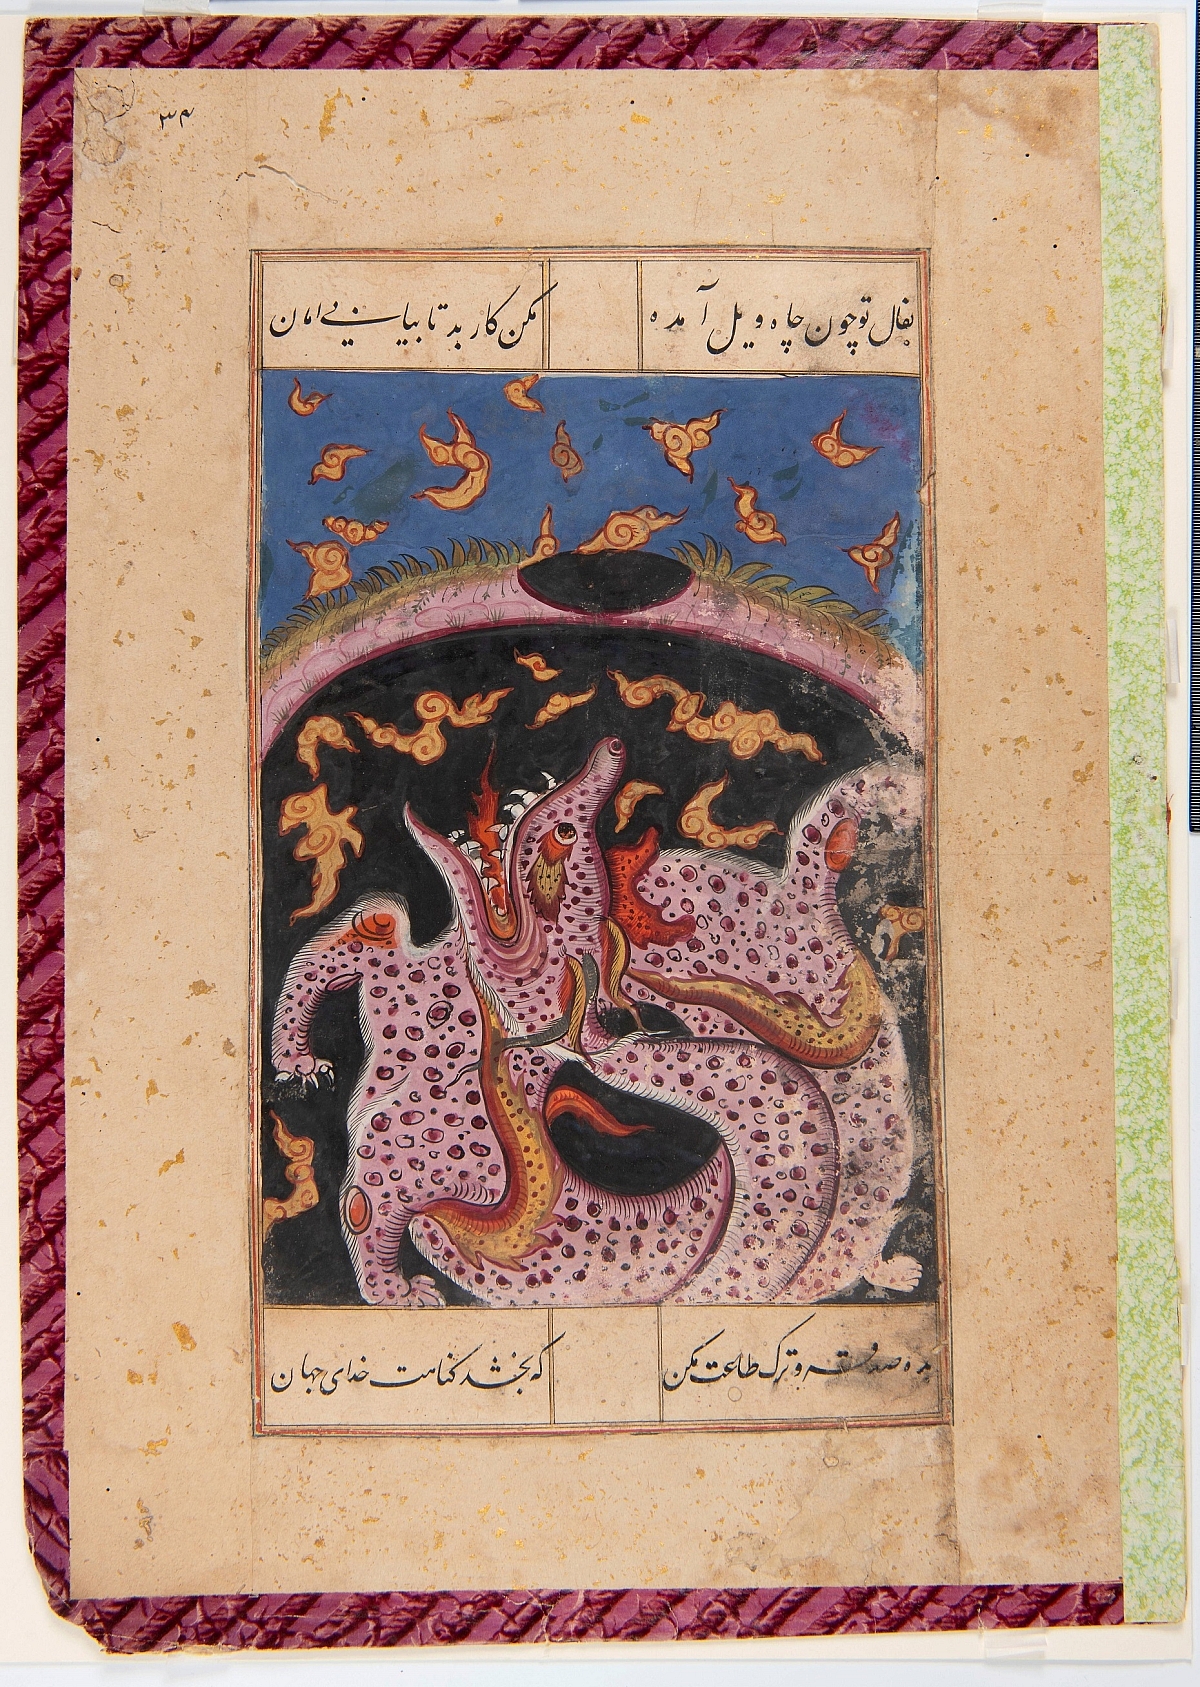 ۳۴
بفال تو چون چاه ویل آمده مکن کار بد تا بیابی امان
بده صدقه و ترک طاعت مکن که بخشد کناهت خدای جهان